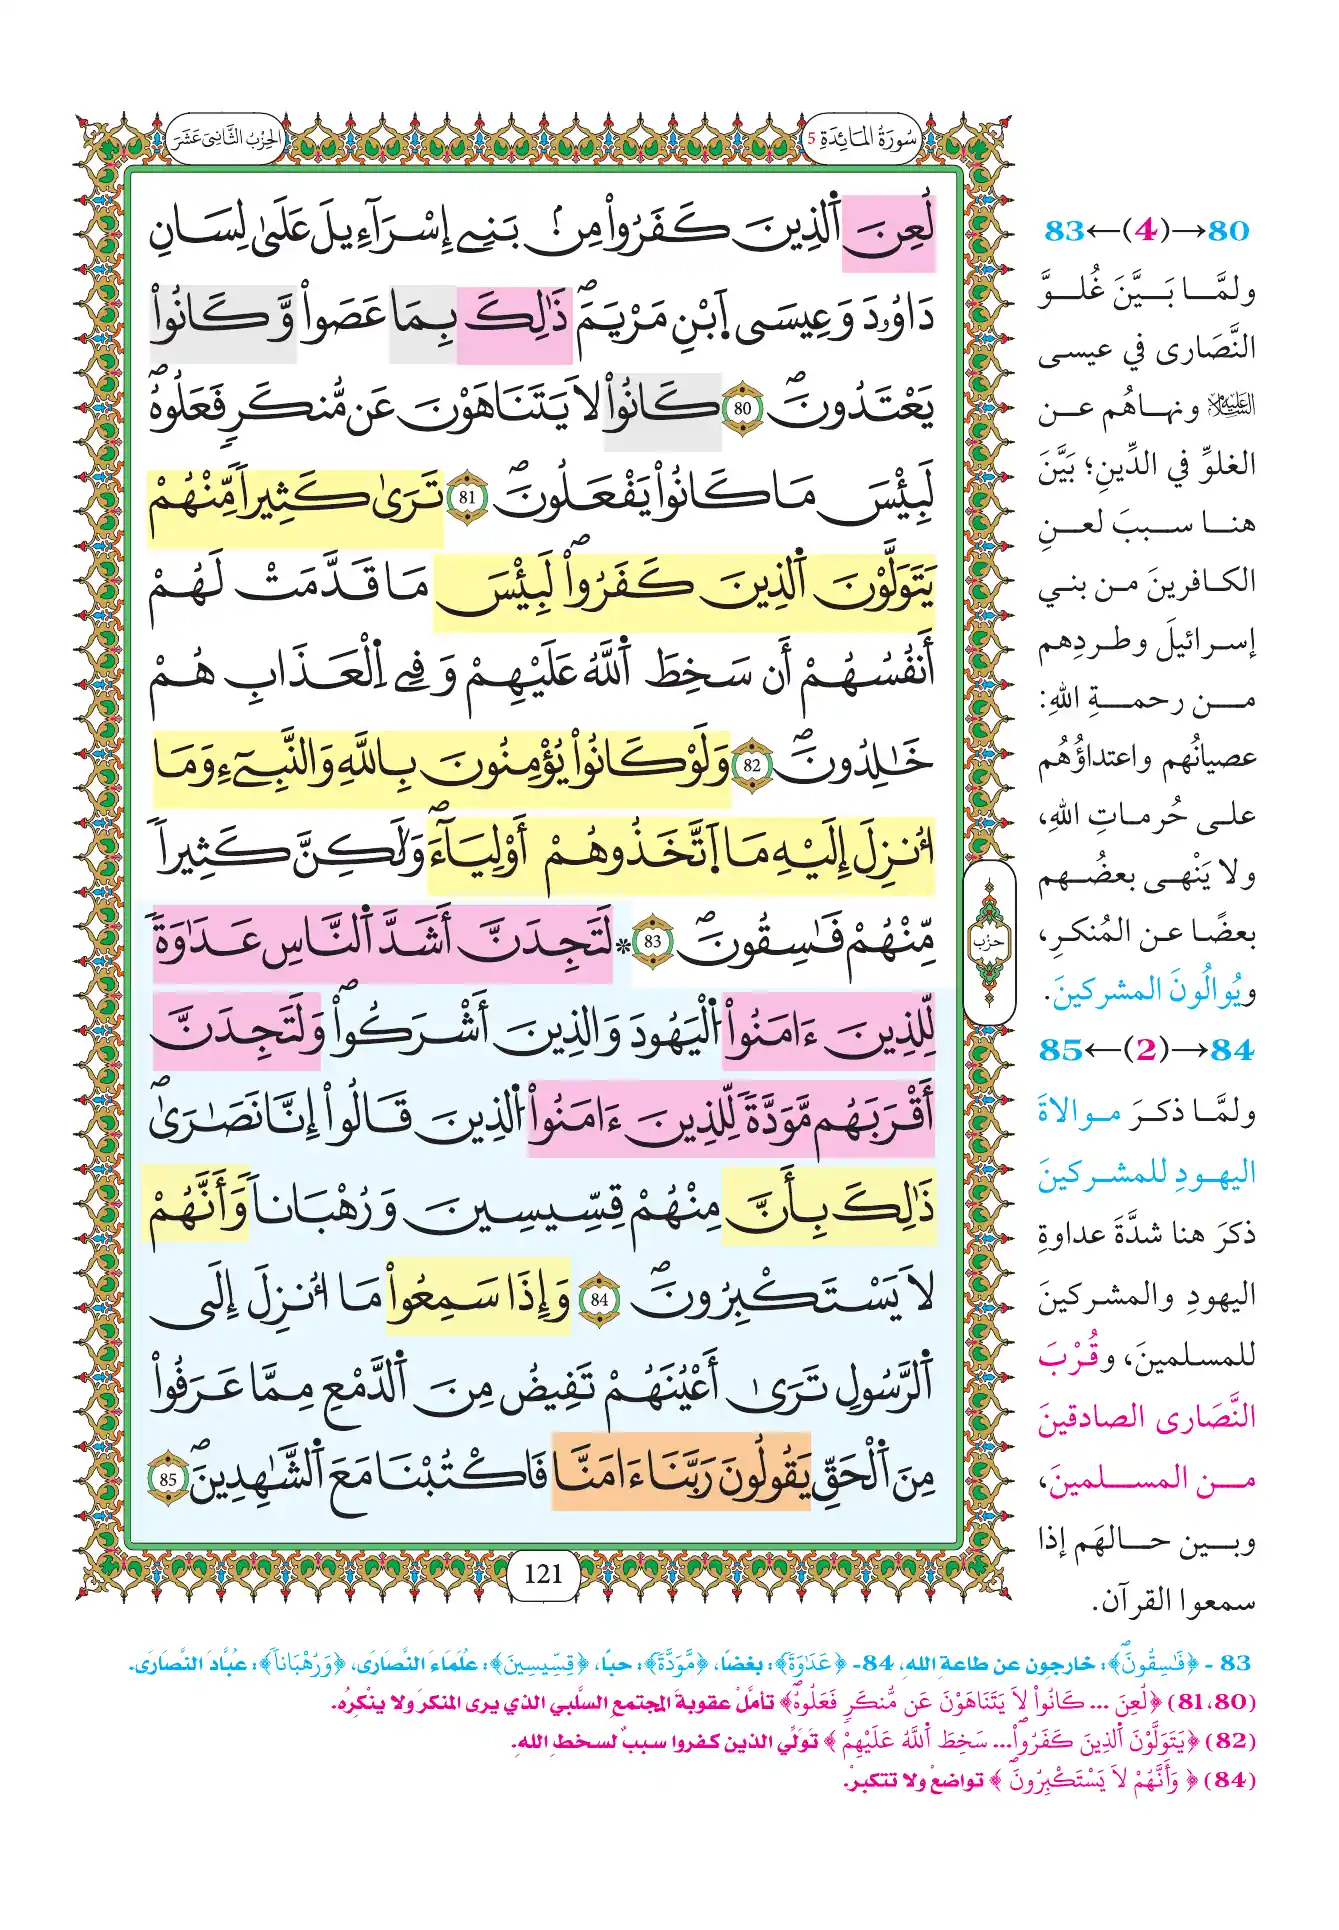 سُورَةُ المَائِدَةِ 5
الحِزْبُ الثَّانِيَ عَشَرَ
لُعِنَ اَ۬لذِينَ كَفَرُواْ مِنۢ بَنِےٓ إِسْرَآءِيلَ عَلَىٰ لِسَانِ
دَاوُۥدَ وَعِيسَى اَ۪بْنِ مَرْيَمَۖ ذَٰلِكَ بِمَا عَصَواْ وَّكَانُواْ
يَعْتَدُونَۖ 80 كَانُواْ لَا يَتَنَاهَوْنَ عَن مُّنكَرٍ فَعَلُوهُۖ
لَبِئْسَ مَا كَانُواْ يَفْعَلُونَۖ 81 تَرَىٰ كَثِيراٗ مِّنْهُمْ
يَتَوَلَّوْنَ اَ۬لذِينَ كَفَرُواْۖ لَبِئْسَ مَا قَدَّمَتْ لَهُمْ
أَنفُسُهُمْ أَن سَخِطَ اَ۬للَّهُ عَلَيْهِمْ وَفِے اِ۬لْعَذَابِ هُمْ
خَٰلِدُونَۖ 82 وَلَوْ كَانُواْ يُؤْمِنُونَ بِاللَّهِ وَالنَّبِےٓءِ وَمَا
أُنزِلَ إِلَيْهِ مَا اَ۪تَّخَذُوهُمْ أَوْلِيَآءَۖ وَلَٰكِنَّ كَثِيراٗ
مِّنْهُمْ فَٰسِقُونَۖ 83 * لَتَجِدَنَّ أَشَدَّ اَ۬لنَّاسِ عَدَٰوَةٗ
لِّلذِينَ ءَامَنُواْ اُ۬لْيَهُودَ وَالذِينَ أَشْرَكُواْۖ وَلَتَجِدَنَّ
أَقْرَبَهُم مَّوَدَّةٗ لِّلذِينَ ءَامَنُواْ اُ۬لذِينَ قَالُواْ إِنَّا نَصَٰرَىٰۖ
ذَٰلِكَ بِأَنَّ مِنْهُمْ قِسِّيسِينَ وَرُهْبَاناٗ وَأَنَّهُمْ
لَا يَسْتَكْبِرُونَۖ 84 وَإِذَا سَمِعُواْ مَا أُنزِلَ إِلَى
اَ۬لرَّسُولِ تَرَىٰ أَعْيُنَهُمْ تَفِيضُ مِنَ اَ۬لدَّمْعِ مِمَّا عَرَفُواْ
مِنَ اَ۬لْحَقِّ يَقُولُونَ رَبَّنَا ءَامَنَّا فَاكْتُبْنَا مَعَ اَ۬لشَّٰهِدِينَۖ 85
حزب
121
80→(4)←83
ولمَّا بَيَّنَ غُلوَّ
النَّصَارى في عيسى
عليه السلام ونهاهُم عن
الغلوِّ في الدِّينِ؛ بَيَّنَ
هنا سببَ لعنِ
الكافرينَ من بني
إسرائيلَ وطردِهم
من رحمةِ اللهِ:
عصيانُهم واعتداؤُهُم
على حُرماتِ اللهِ،
ولا يَنْهى بعضُهم
بعضًا عن المُنكرِ،
ويُوالُونَ المشركينَ.
84→(2)←85
ولمَّا ذكرَ موالاةَ
اليهودِ للمشركينَ
ذكرَ هنا شدَّةَ عداوةِ
اليهودِ والمشركينَ
للمسلمينَ، وقُرْبَ
النَّصَارى الصادقينَ
من المسلمينَ،
وبين حالَهَم إذا
سمعوا القرآن.
83 - ﴿فَٰسِقُونَۖ﴾: خارجون عن طاعةِ اللهِ، 84- ﴿عَدَٰوَةٗ﴾: بغضًا، ﴿مَّوَدَّةٗ﴾: حبًا، ﴿قِسِّيسِينَ﴾: عُلَمَاءَ النَّصَارَى، ﴿وَرُهْبَاناٗ﴾: عبَّادَ النَّصَارَى.
(81،80) ﴿لُعِنَ ... كَانُواْ لَا يَتَنَاهَوْنَ عَن مُّنكَرٍ فَعَلُوهُۖ﴾ تأمَّلْ عقوبةَ المجتمعِ السَّلبي الذي يرى المنكرَ ولا ينكرُه.
(82) ﴿يَتَوَلَّوْنَ اَ۬لذِينَ كَفَرُواْۖ... سَخِطَ اَ۬للَّهُ عَلَيْهِمْ﴾ تَوَلِّي الذين كفروا سببٌ لسخطِ اللهِ.
(84) ﴿وَأَنَّهُمْ لَا يَسْتَكْبِرُونَۖ﴾ تواضعْ ولا تتكبرْ.